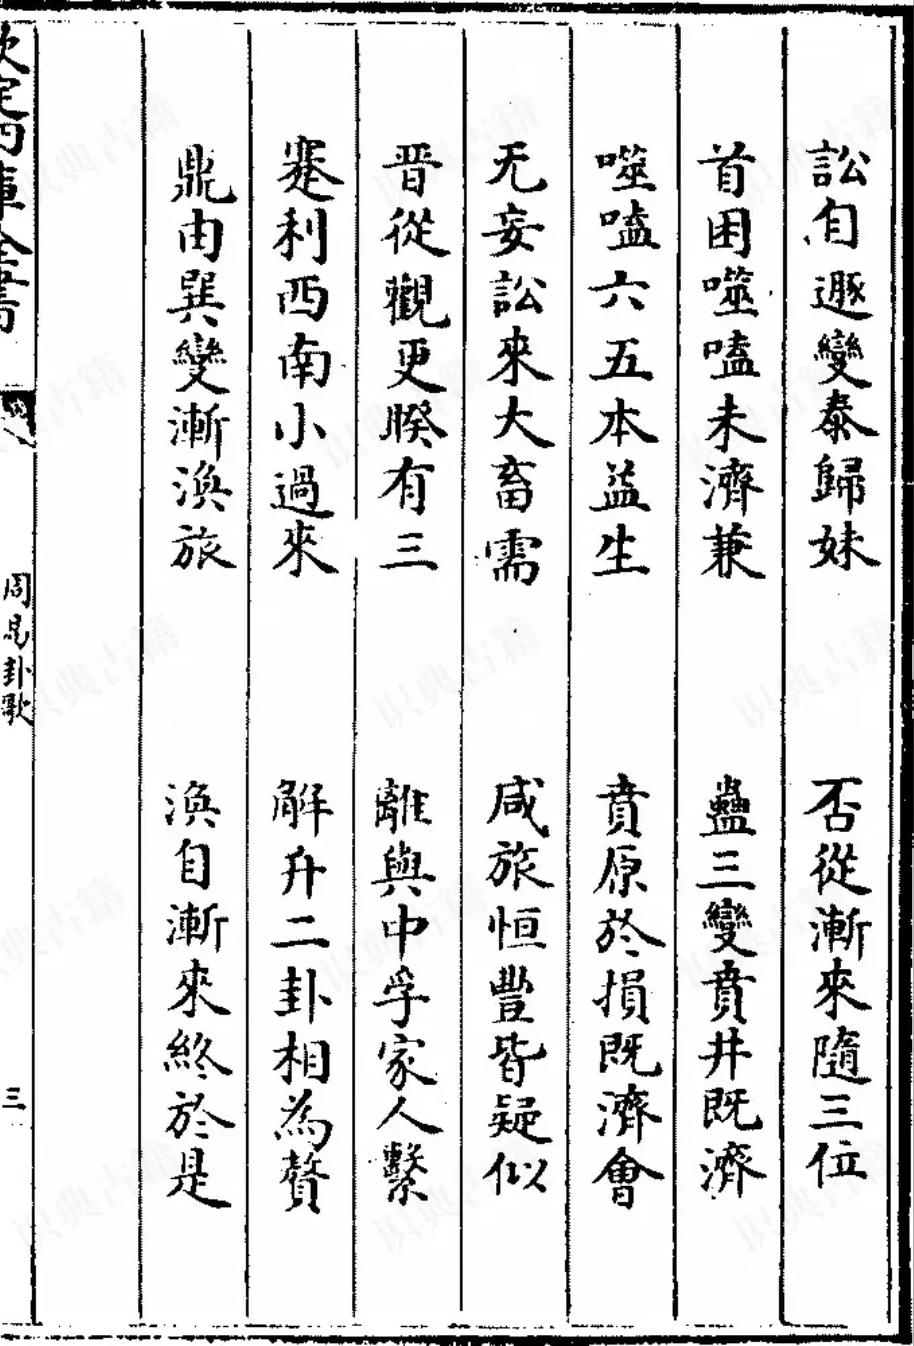 訟自遯變泰歸妹　否從漸來隨三位
首困噬嗑未濟兼　蠱三變賁井既濟
噬嗑六五本益生　賁原於損既濟會
无妄訟來大畜需　咸旅恒豐皆疑似
晉從觀更睽有三　離與中孚家人繫
蹇利西南小過來　解升二卦相為贅
鼎由巽變漸渙旅　渙自漸來終於是
欽定四庫全書
周易卦歌
三